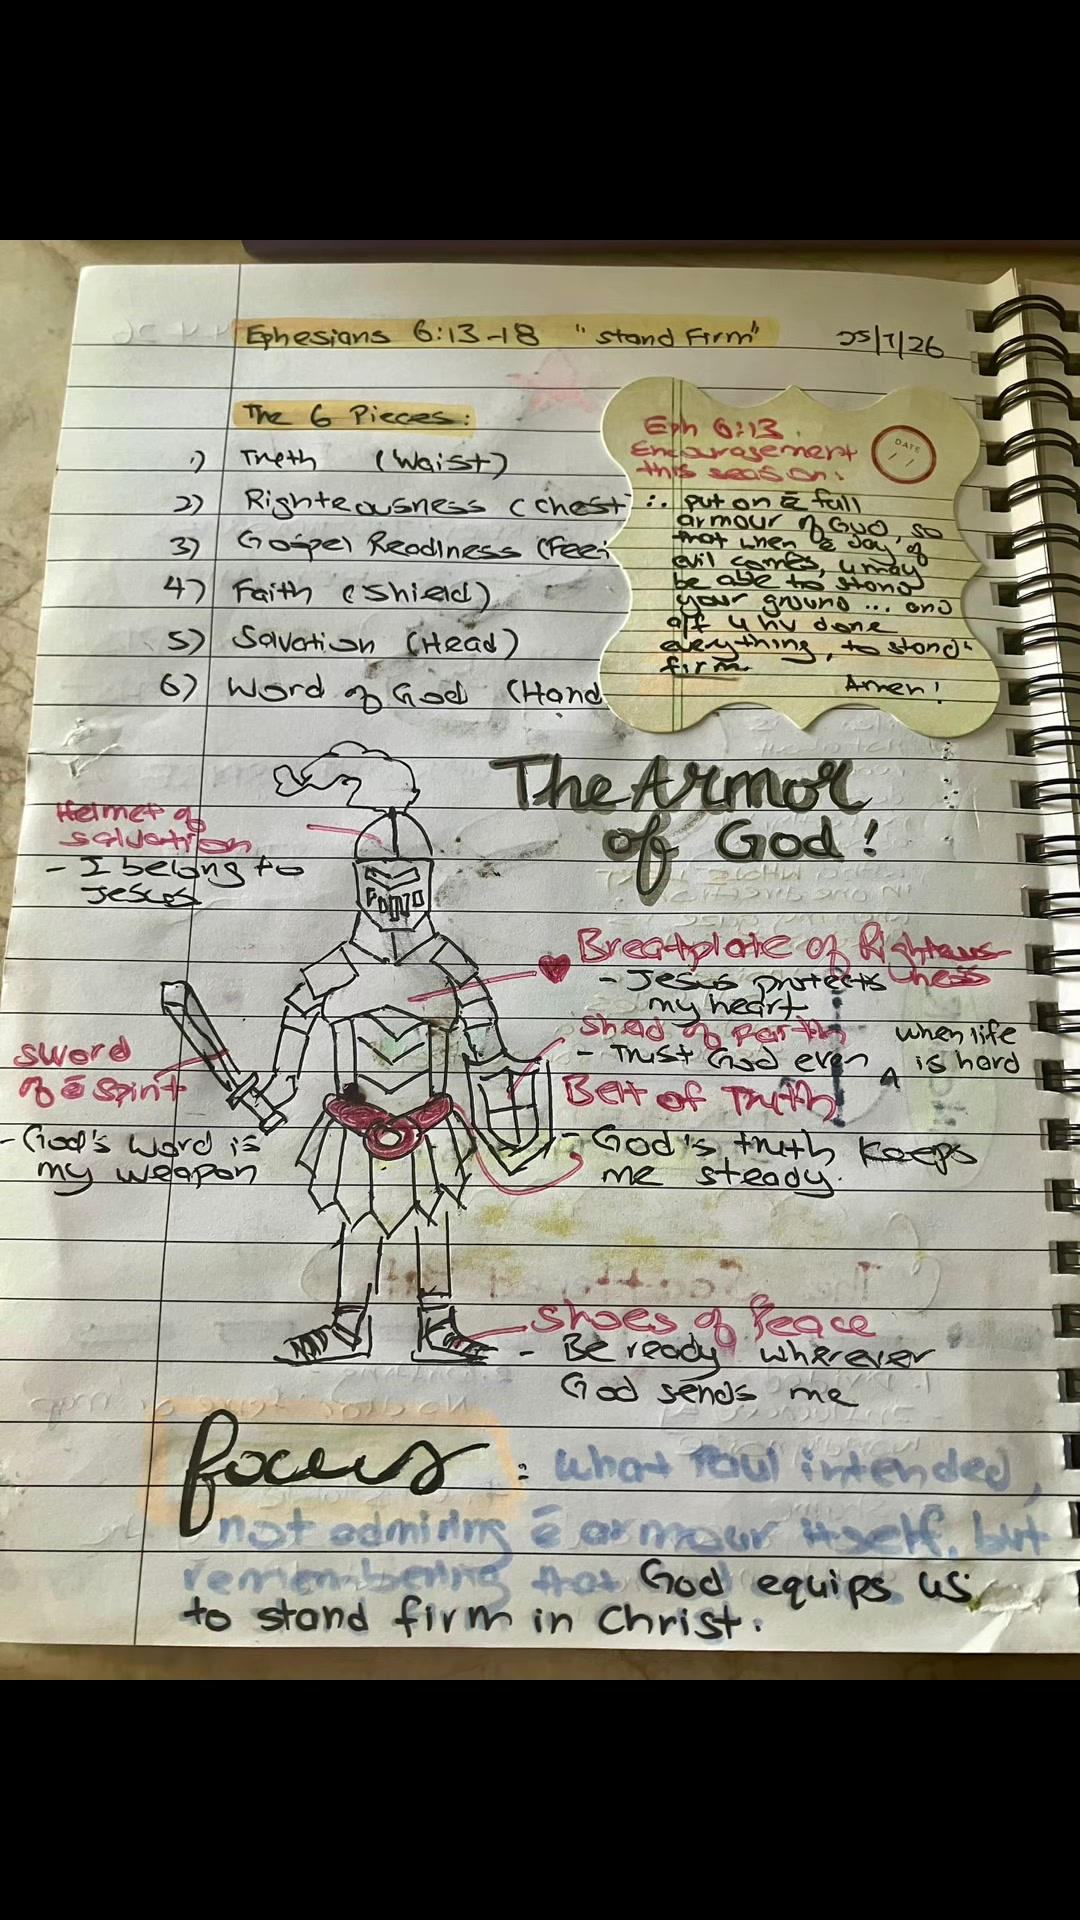 Ephesians 6:13-18 "Stand Firm"
25/7/26
The 6 Pieces:
1) Truth (Waist)
2) Righteousness (Chest
3) Gospel Readiness (Fee
4) Faith (Shield)
5) Salvation (Head)
6) Word of God (Hand
Eph 6:13
Encouragement
this season:
DATE
/ /
∴ put on ē full
armour of God, so
that when ē day of
evil comes, u may
be able to stand
your ground ... and
aft u hv done
everything, to stand
firm.
Amen!
The Armor
of God!
Helmet of
salvation
- I belong to
Jesus
Breatplate of Righteous
ness
- Jesus protects
my heart
Sheld of Faith
- Trust God even ^ when life
is hard
Sword
of ē Spirit
- God's word is
my weapon
Belt of Truth
- God's truth keeps
me steady.
Shoes of Peace
- Be ready wherever
God sends me
focus : What Paul intended,
not admiring ē armour itself, but
remembering that God equips us
to stand firm in Christ.